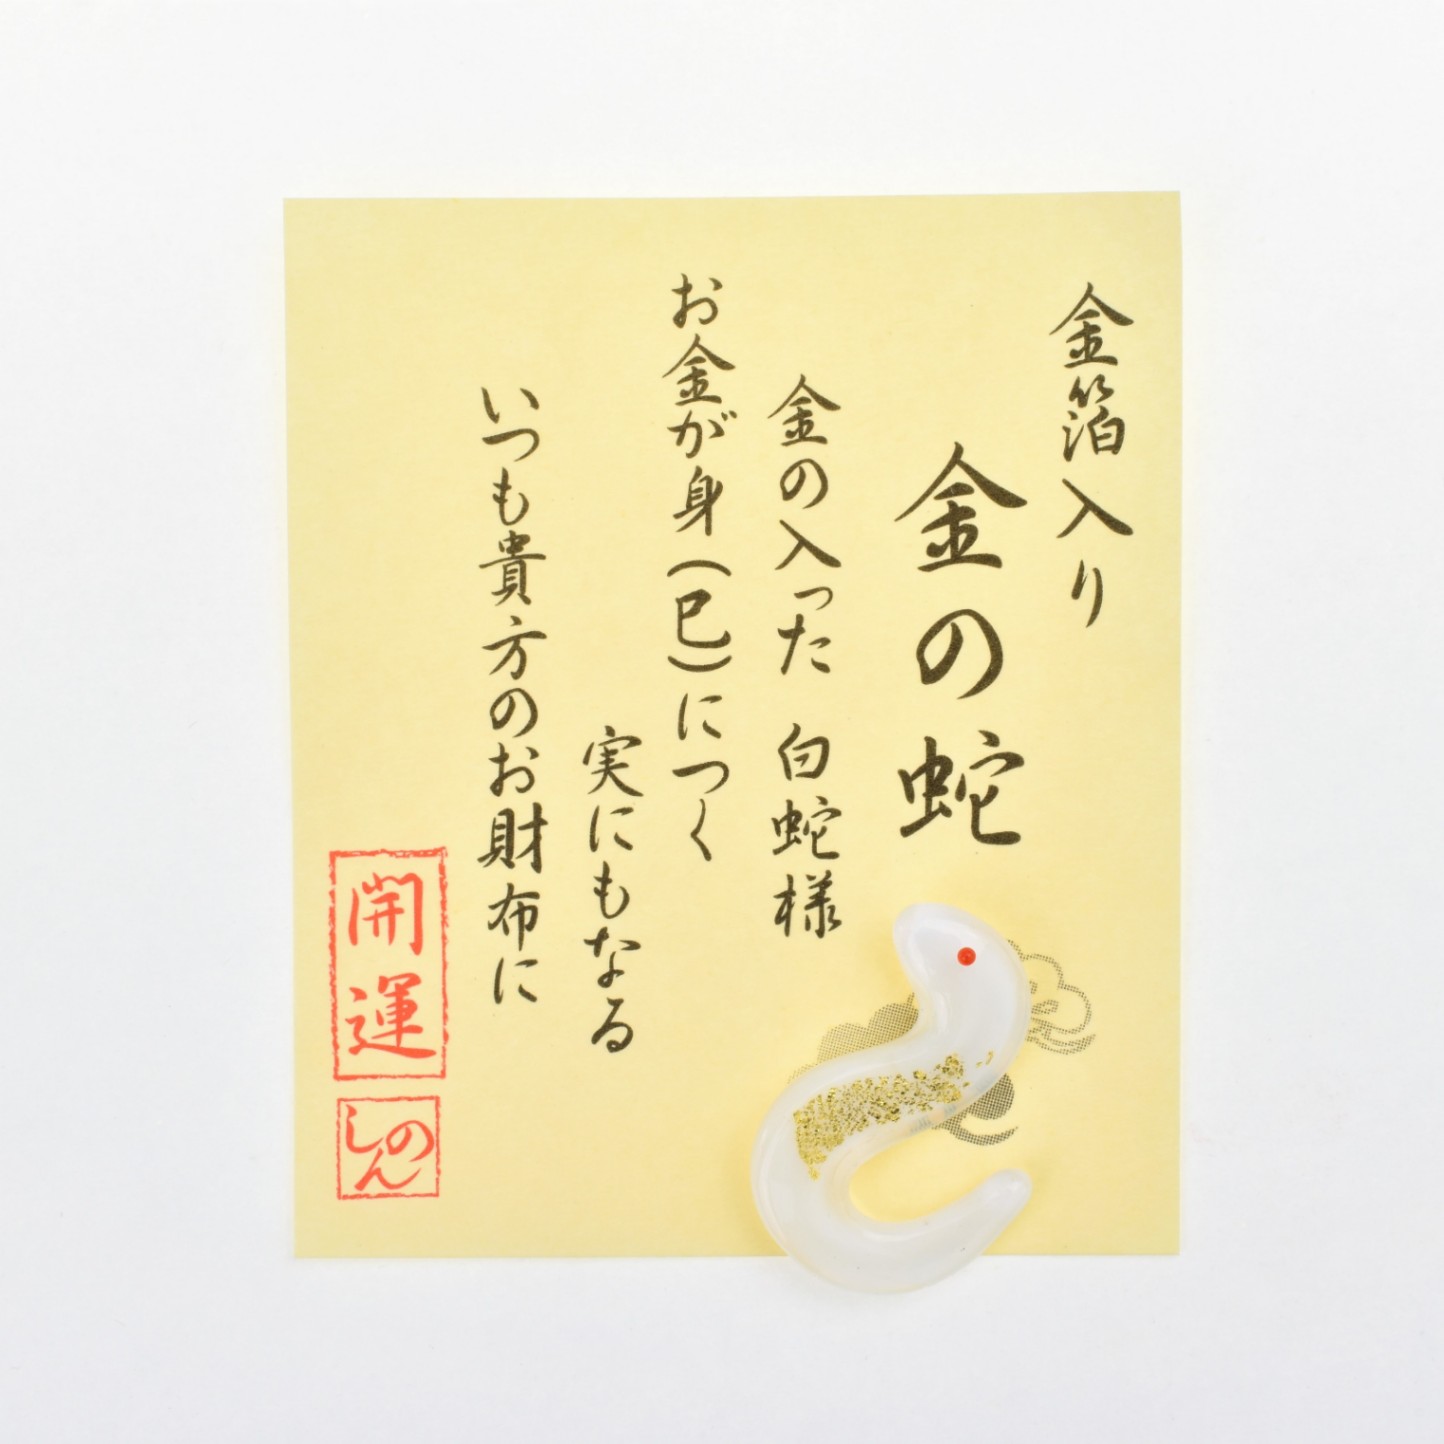 金箔入り
金の蛇
金の入った 白蛇様
お金が身(巳)につく
実にもなる
いつも貴方のお財布に
開運
しのん